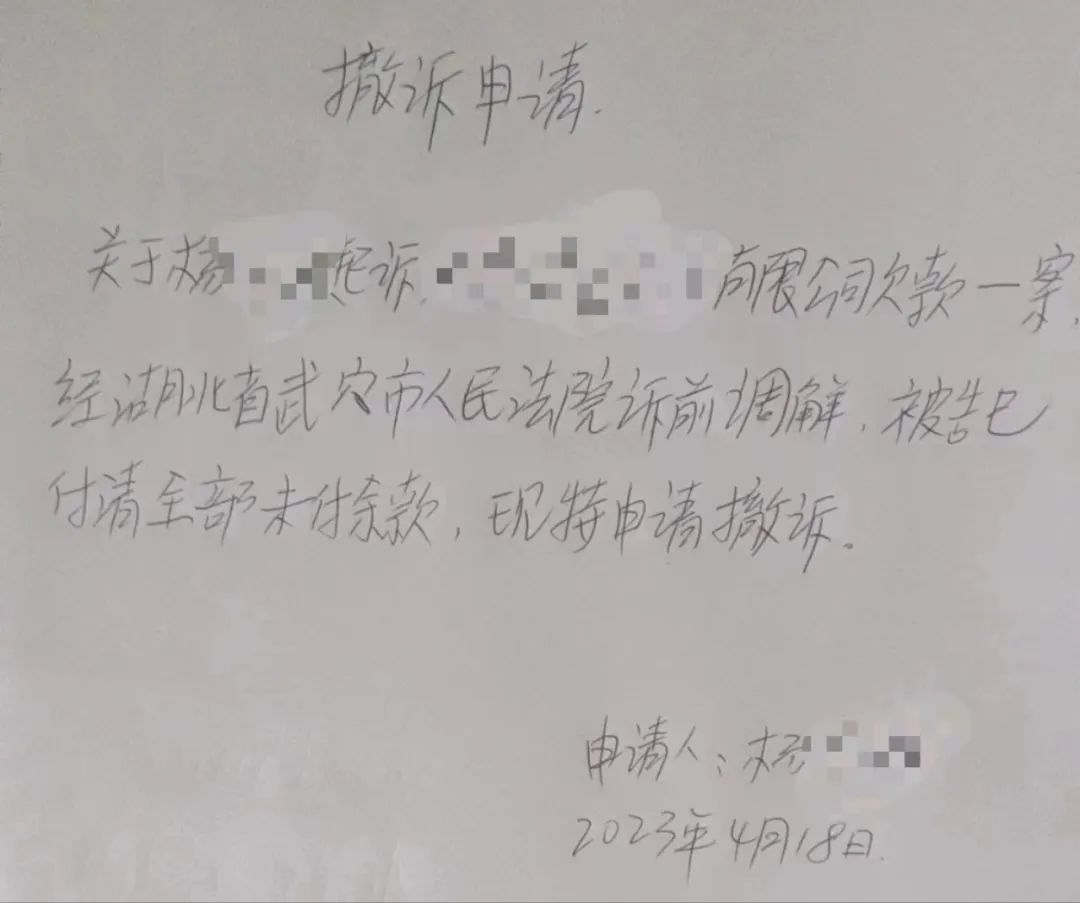 撤诉申请.
关于杨 起诉 有限公司欠款一案,
经湖北省武穴市人民法院诉前调解,被告已
付清全部未付余款,现特申请撤诉。
申请人:杨
2023年4月18日.